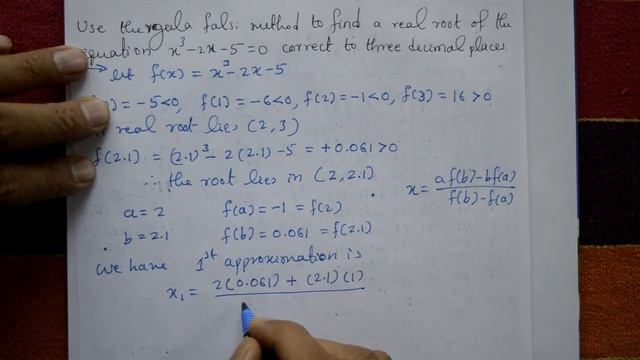 Use the regula falsi method to find a real root of the
equation x³-2x-5=0 correct to three decimal places.
→ let f(x) = x³-2x-5
) = -5<0, f(1) = -6<0, f(2) = -1<0, f(3) = 16 >0
real root lies (2,3)
f(2.1) = (2.1)³ - 2(2.1)-5 = +0.061>0
∴ the root lies in (2,2.1)
x = af(b)-bf(a) / f(b)-f(a)
a = 2 f(a) = -1 = f(2)
b = 2.1 f(b) = 0.061 = f(2.1)
We have 1st approximation is
x₁ = 2(0.061) + (2.1)(1)